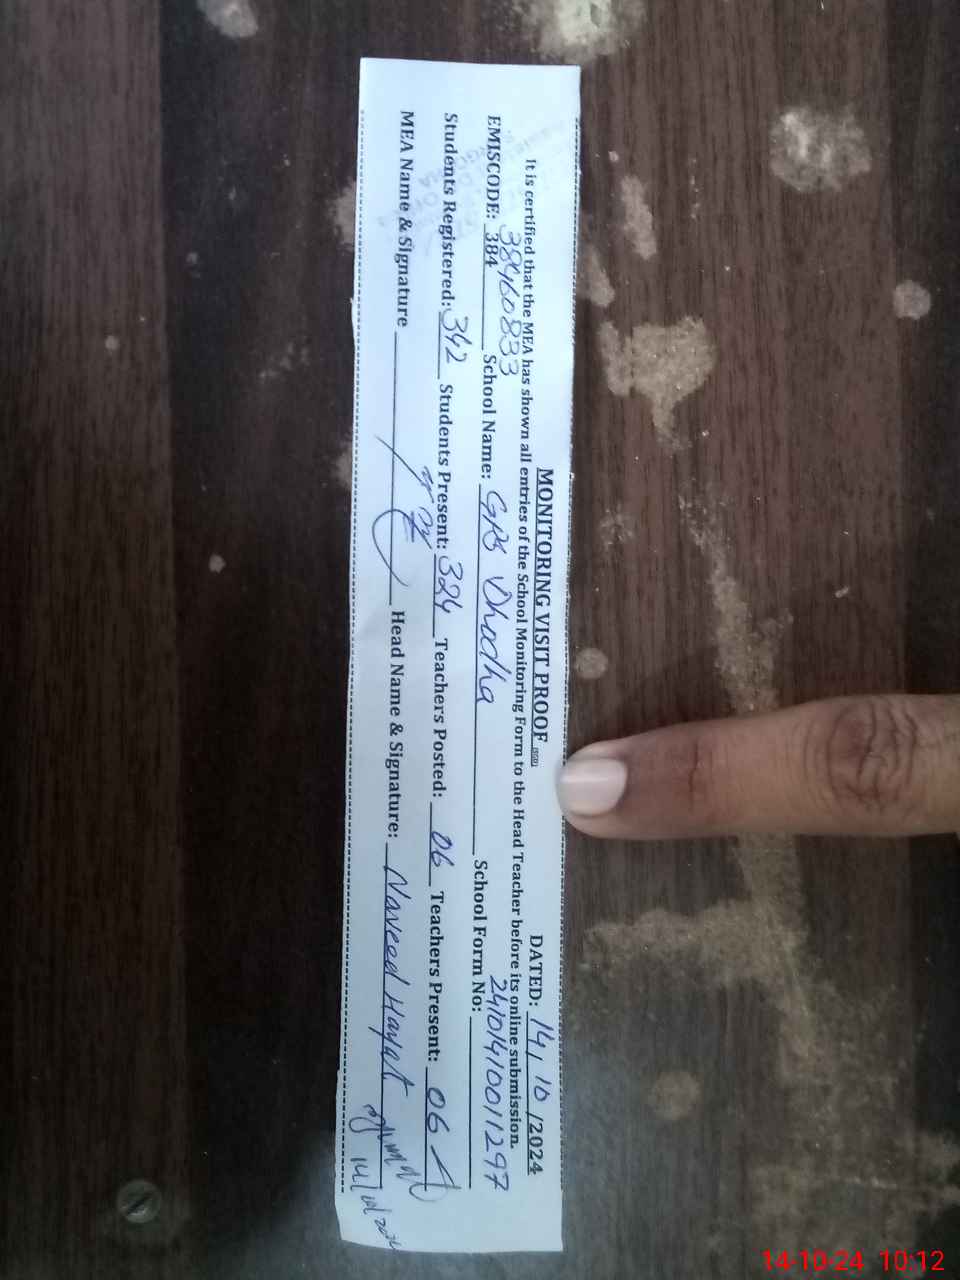 MONITORING VISIT PROOF
DATED: 14/10/2024
It is certified that the MEA has shown all entries of the School Monitoring Form to the Head Teacher before its online submission.
38460833
24101410011297
EMISCODE: 384 School Name: GPS Dhodha School Form No:
Students Registered: 342 Students Present: 324 Teachers Posted: 06 Teachers Present: 06
MEA Name & Signature Head Name & Signature: Naveed Hayat
14/10/2024
14-10-24 10:12